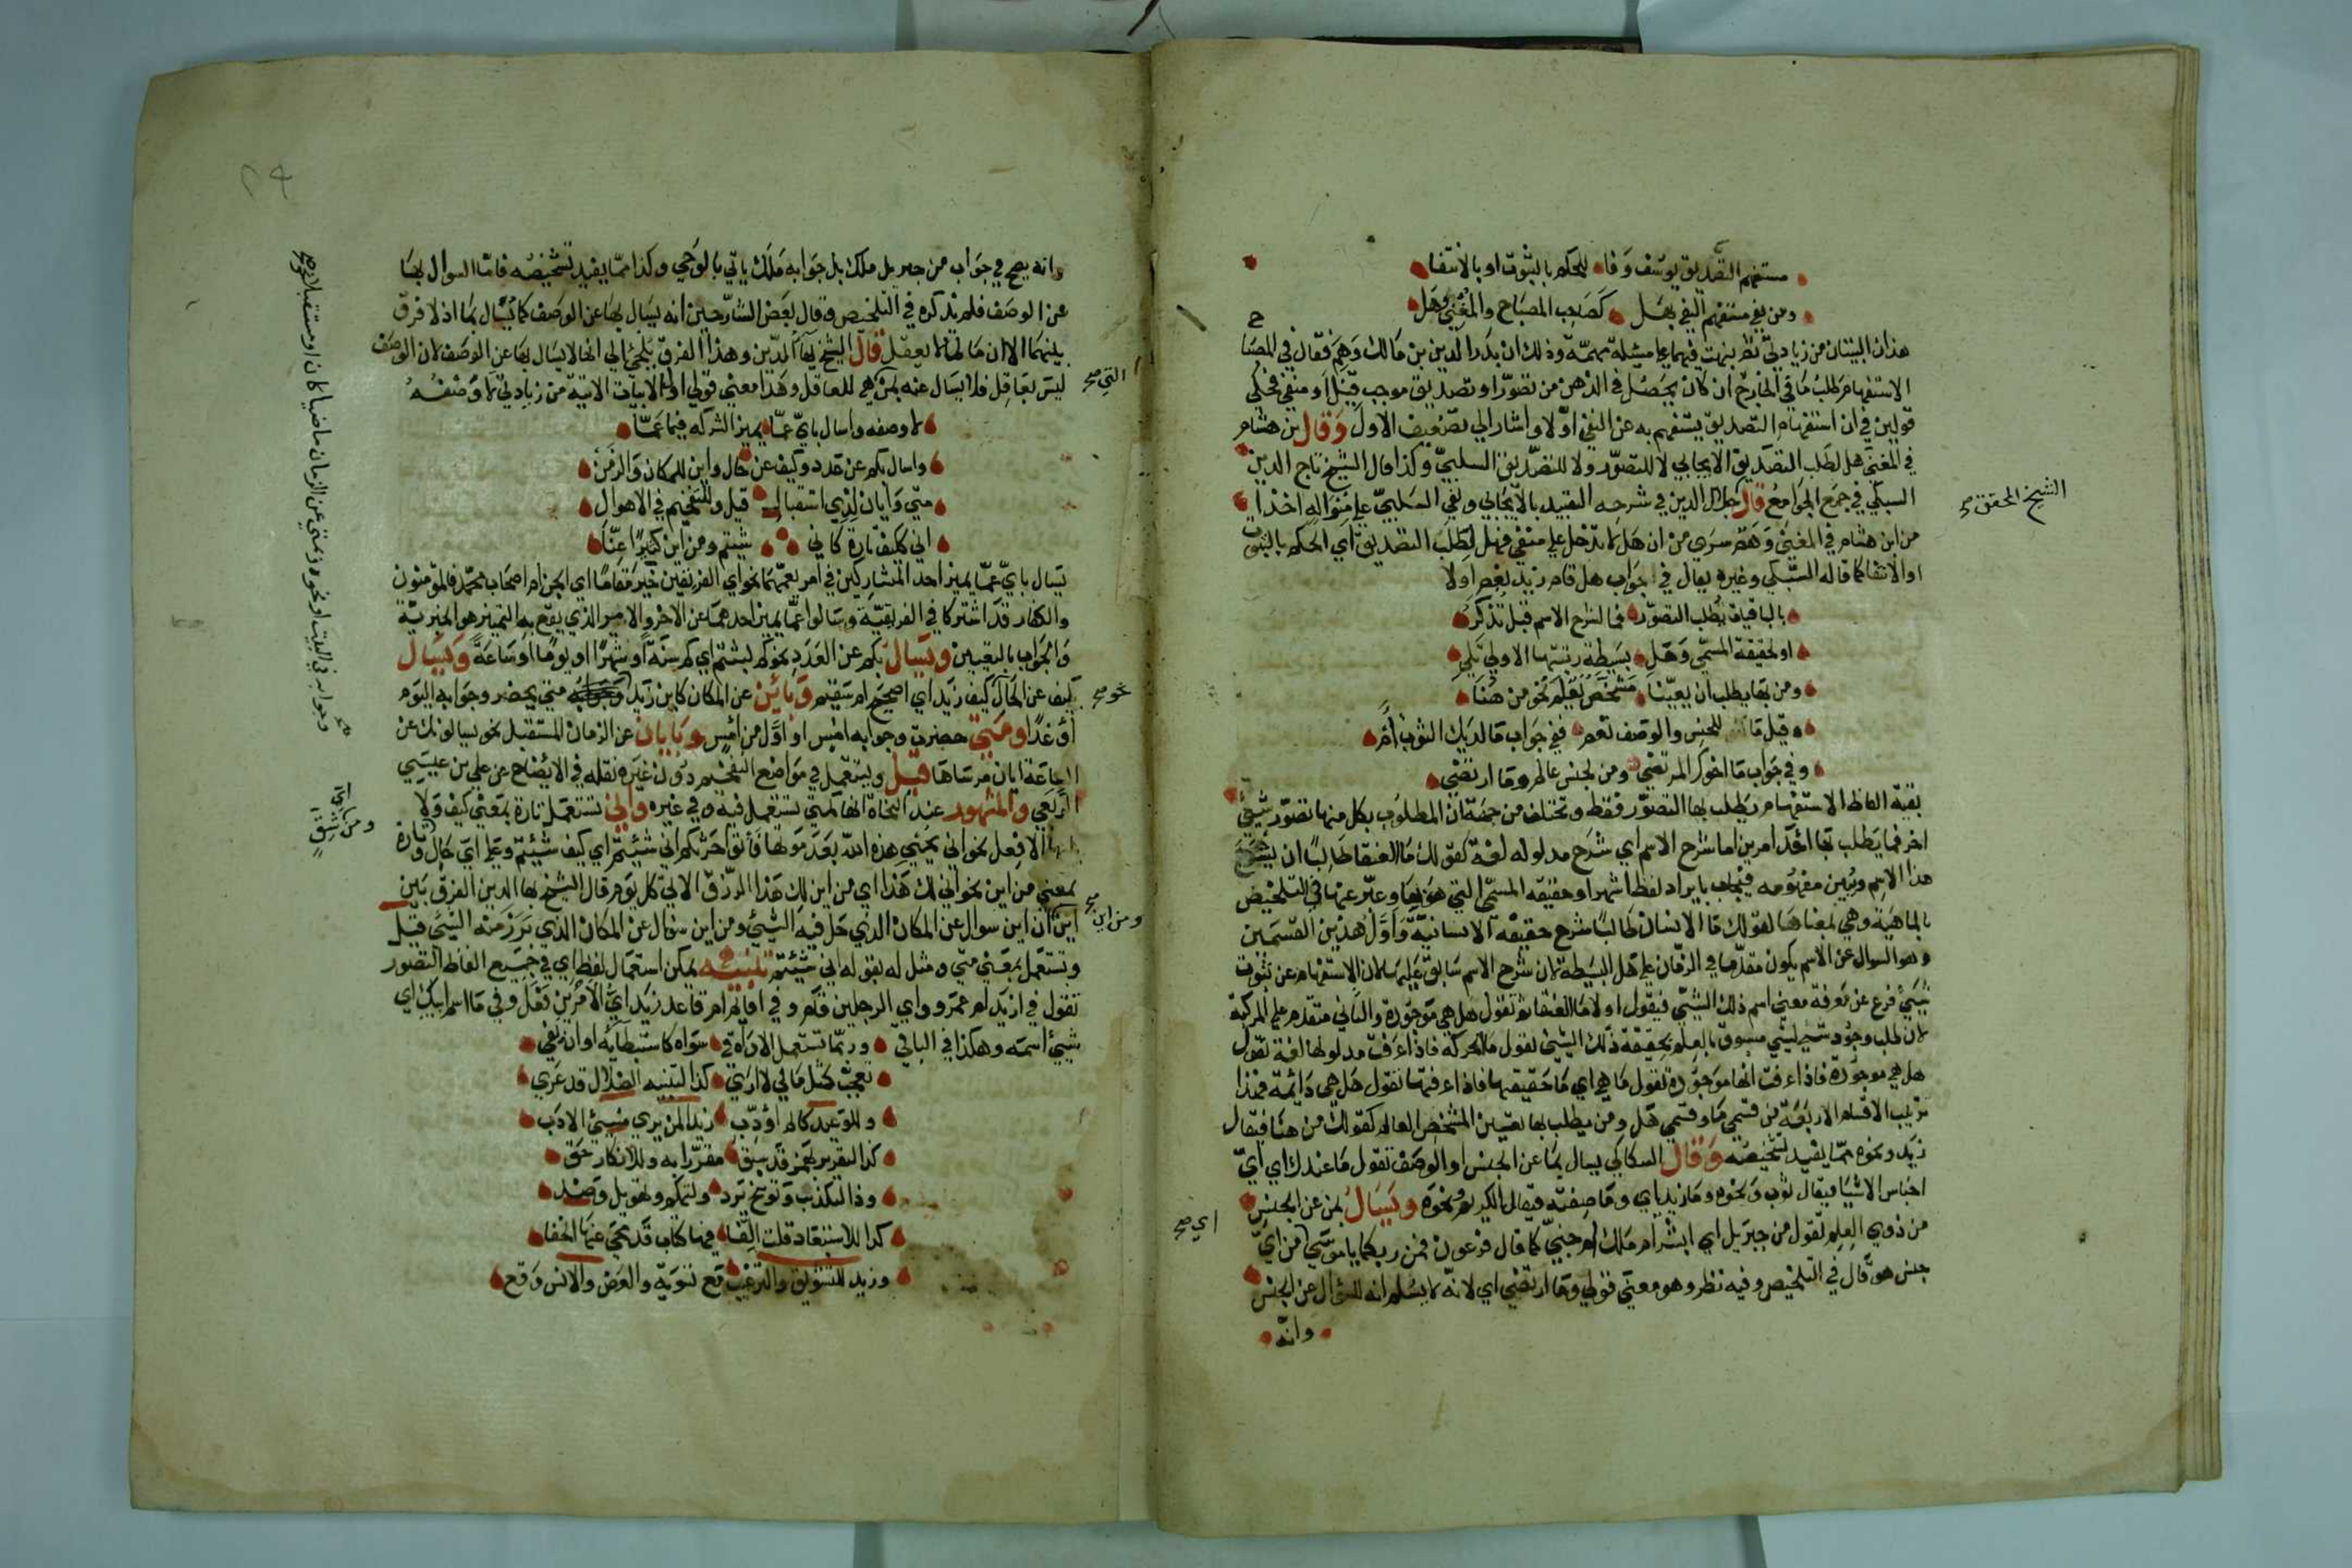 مستفهم التصديق يوسف وفا للحكم بالثبوت او بالانتفا
ومن يفي مستفهم النفي بهل كصاحب المصباح والمغني وهل
هذان البيتان من زيادتي نظر بنهت فيهما علي مسئلة مهمة وذلك ان بدر الدين بن مالك وهم فقال في المصبا
الاستفهام طلب ما في الخارج ان كان يحصل في الذهن من تصور او تصديق موجب قبل او منفي فحكي
قولين في ان استفهام التصديق يستفهم به عن النفي اولا واشار الي تضعيف الاول وقال بن هشام
في المغني هل لطلب التصديق الايجابي لا للتصور ولا للتصديق السلبي وكذا قال الشيخ تاج الدين
السبكي في جمع الجوامع قال جلال الدين في شرحه التقييد بالايجابي ونفي السلبي علي منواله اخذا
الشيخ المحقق صح
من ابن هشام في المغني وهم سري من ان هل لا تدخل علي منفي فهل لطلب التصديق اي الحكم بالثبوت
او الانتفا كما قاله السبكي وغيره يقال في جواب هل قام زيد نعم او لا
بالباقيات يطلب التصور فما لشرح الاسم قبل تذكر
او لحقيقة المسمي وهل بسيطة رتبتها الاولي تلي
ومن بها يطلب ان يعينا مشخص لعلم نحو من هنا
وقيل ما للجنس والوصف نعم ففي جواب ما لديك الثوب ام
وفي جواب ما اخوك المرتضي ومن لجنس عالم وما ارتضي
بقية الفاظ الاستفهام يطلب بها التصور فقط وتختلف من جهة ان المطلوب بكل منها تصور شيئ
اخر فما يطلب بها احد امرين اما شرح الاسم اي شرح مدلوله لغة كقولك ما العنقا طالبا ان يشرح
هذا الاسم ويبين مفهومه فيجاب بايراد لفظ اشهر او حقيقة المسمي التي هو بها وعبر عنها في التلخيص
بالماهية وهي بمعناها كقولك ما الانسان طالبا شرح حقيقة الانسانية واول هذين القسمين
وهو السوال عن الاسم يكون مقدما في الزمان علي هل البسيطة لان شرح الاسم سابق عليها لان الاستفهام عن ثبوت
شيئ فرع عن معرفة معني اسم ذلك الشيئ فيقول اولا ما العنقا ثم تقول هل هي موجودة والثاني متقدم علي المركبة
لان طلب وجود شي لشي مسبوق بالعلم بحقيقة ذلك الشيئ تقول ما الحركة فاذا عرفت مدلولها لغة تقول
هل هي موجودة فاذا عرفت انها موجودة تقول ما هي اي ما حقيقتها فاذا عرفتها تقول هل هي دائمة فهذا
ترتيب الاقسام الاربعة من قسمي ما وقسمي هل ومن يطلب بها تعيين المشخص العالم كقولك من هنا فيقال
زيد ونحوه مما يفيد تشخيصه وقال السكاكي يسال بما عن الجنس او الوصف تقول ما عندك اي اي
اجناس الاشيا فيقال ثوب ونحوه وما زيد اي وما صفته فيقال الكريم ونحوه ويسال بمن عن الجنس
من ذوي العلم تقول من جبريل اي ابشر ام ملك ام جني كما قال فرعون فمن ربكما يا موسي من اي
اي صح
جنس هو قال في التلخيص وفيه نظر وهو معني قولي وما ارتضي اي لانه لا يسلم انه للسؤال عن الجنس
وانه
وانه يصح في جواب من جبريل ملك بل جوابه ملك ياتي بالوحي وكذا مما يفيد تشخيصه فاما السوال بها
عن الوصف فلم يذكره في التلخيص وقال بعض الشارحين انه يسال بها عن الوصف كما يسال بما اذ لا فرق
بينهما الا ان ما لما لا يعقل قال الشيخ بها الدين وهذا الفرق يلجئ الي انها لا يسال بها عن الوصف لان الوصف
ليس بعاقل فلا يسال عنه بمن هي للعاقل وهذا معني قولي اول الابيات الاتية من زيادتي لا وصفه
التي صح
لا وصفه واسال باي عما يميز الشركه فيما عما
واسال بكم عن عدد وكيف عن حال واين للمكان والزمن
متي وايان لذي استقبال قيل وللتفخيم في الاهوال
اني ككيف تارة كاني شيتم ومن اين كثيرا عنا
يسال باي عما يميز احد المتشاركين في امر يعمهما نحو اي الفريقين خير مقاما اي انحن ام اصحاب محمد فالمؤمنون
والكفار قد اشتركا في الفريقية وسالوا عما يميز احدهما عن الاخر والامر الذي يقع به التمييز هو الخيرية
والجواب بالتعيين ويسال بكم عن العدد نحو كم لبثتم اي كم سنة او شهرا او يوما او ساعة ويسال
بكيف عن الحال كيف زيد اي اصحيح ام سقيم وباين عن المكان كاين زيد متي يحضر وجوابه اليوم
نحو صح
او غدا ومتي حضرت وجوابه امس او اول من امس وبايان عن الزمان المستقبل نحو يسالونك عن
الساعة ايان مرساها قيل ويستعمل في مواضع التفخيم دون غيره نقله في الايضاح عن علي بن عيسي
الربعي والمشهور عند النحاة انها كمتي تستعمل فيه وفي غيره واني تستعمل تارة بمعني كيف ولا
يليها الا فعل نحو اني يحيي هذه الله بعد موتها فاتوا حرثكم اني شئتم اي كيف شئتم وعلي اي حال وتارة
بمعني من اين نحو اني لك هذا اي من اين لك هذا الرزق الاتي كل يوم قال الشيخ بها الدين الفرق بين
اين ان اين سوال عن المكان الذي حل فيه الشيئ ومن اين سؤال عن المكان الذي برز منه الشيئ قيل
ومن اين صح
وتستعمل بمعني متي ومثل له بقوله اني شئتم تنبيه يمكن استعمال لفظ اي في جميع الفاظ التصور
تقول في ازيد ام عمرو واي الرجلين قام وفي اقائم ام قاعد زيد اي الامرين فعل وفي ما اسم ابيك اي
شيئ اسمه وهكذا في الباقي وربما تستعمل الاداة في سواه كاستبطائه او ان يفي
تعجب كمثل مالي لا اري كذا التنبيه الضلال قد عري
وللوعيد كالم اؤدب زيدا لمن يري مسيئ الادب
كذا التقرير بهمز قد سبق مقررا به وللانكار حق
وذا التكذب وتوبيخ ترد ولتهكم وتهويل وضد
كذا للاستبعاد قلت القفا فيها كتاب قد محي عنها الخفا
وزيد للتشويق والترغيب مع تسوية والعرض والانس وقع
وجوابه في البيت او نحوه وبمتي عن الزمان ماضيا كان او مستقبلا نحو صح